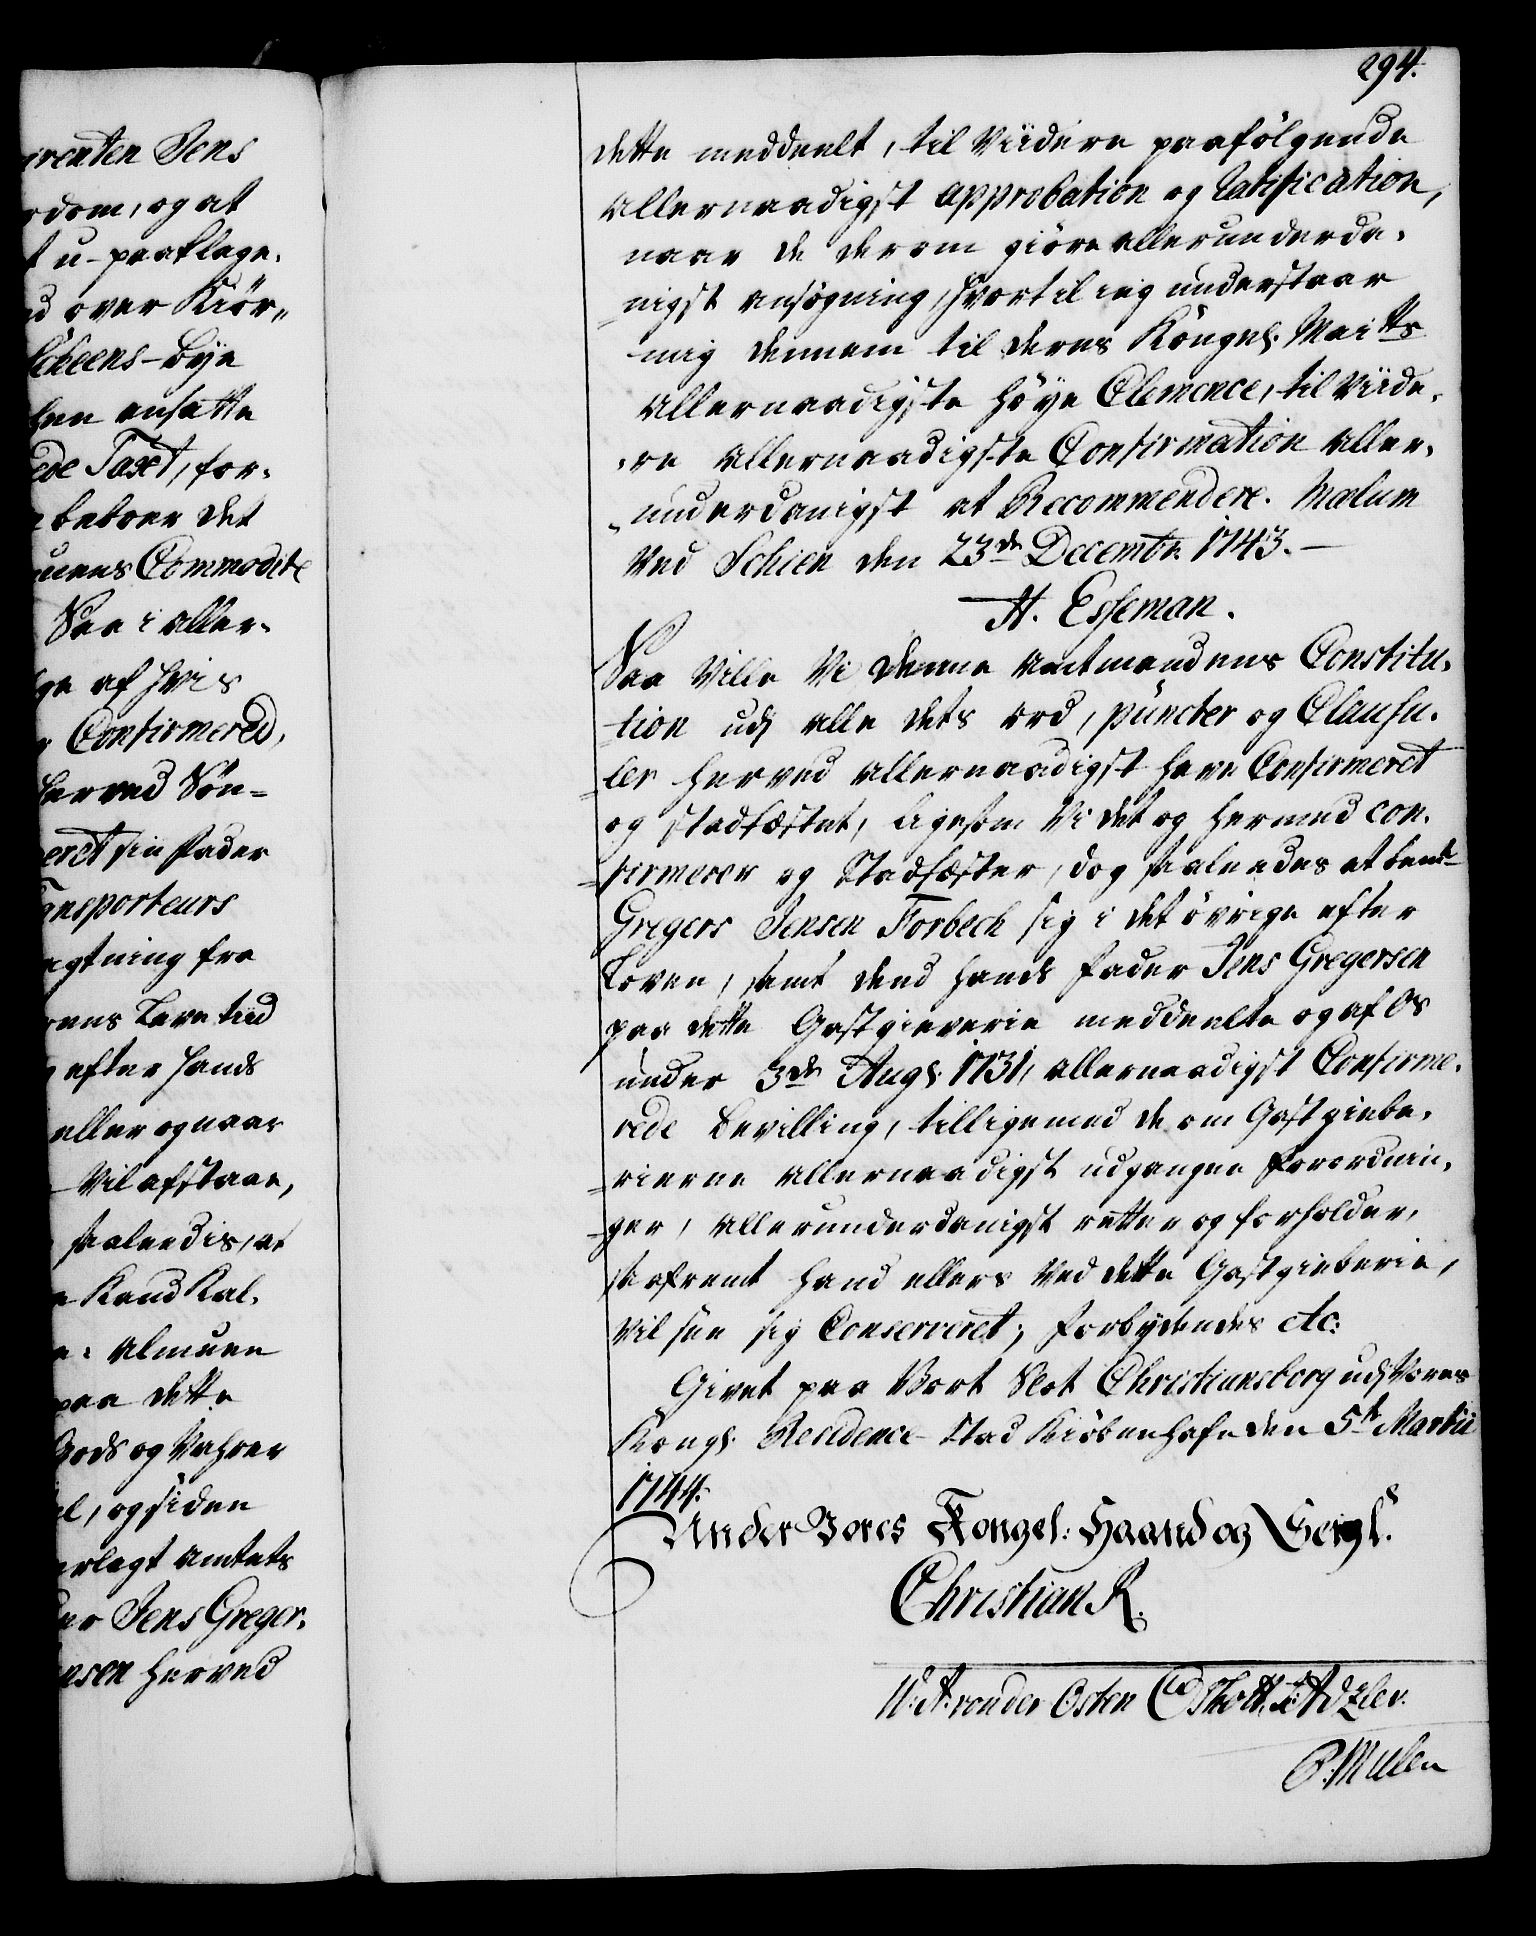 294.
irenten Jens
dom, og at
t u-paaklage.
d over Kiör„
Scheens-Bye
hen ansatte
ede Taxt, for-
beboer det
uens Commodite
Saa i Aller-
ge af hvis
Confirmered,
herved Vön=
eret sin Fader
ansporteurs
agtning fra
rens Levetiid
efter hands
eller og naar
Vil afstaae,
saaledis, at
Kand Kal-
Almuen
paa dette
Gods og Vahrer
el, og siden
erlagt Amtets
er Jens Greger-
nsen herved
dette meddeelt, til Viidere paafölgende
Allernaadigst approbation og Ratification,
naar de derom giöre allerunderda-
-nigst ansögning, hvortil ieg understaar
mig dennem til deres Köngel. Maitts
Allernaadigste höye Clemence, til Viide-
-re Allernaadigste Confirmation Aller-
-underdanigst at Recommendere. Mælum
Ved Schien den 23de Decembr. 1743.-
H. Esseman.
Saa Ville Vi denne Amtmandens Constitu-
-tion udj alle dets ord, püncter og Clausu-
-ler herved allernaadigst have Confirmeret
og stadfæstet, ligesom Vi det og hermed con-
-firmerer og Stadfæster, dog saaledes at bemte
Gregers Jensen Forbech sig i det övrige efter
Loven, samt dend hands fader Jens Gregersen
paa dette Gastgieverie meddeelte og af Os
under 3de Augs. 1731, allernaadigst Confirme-
rede Bevilling, tilligemed de om Gastgiebe-
-rierne Allernaadigst udgangne forordnin-
-ger, Allerunderdanigst retter og forholder,
saafremt hand ellers Ved dette Gastgieberie,
Vil see sig Conserveret; forbydendes etc:
Givet paa Vort Slot Christiansborg udj Vores
Kongl. Residence-Stad Kiöbenhafn den 5te Martii
1744.
Under Vores Kongel: Haand og Seigl.
Christian R.
W: A: von der Osten
P. Mulen